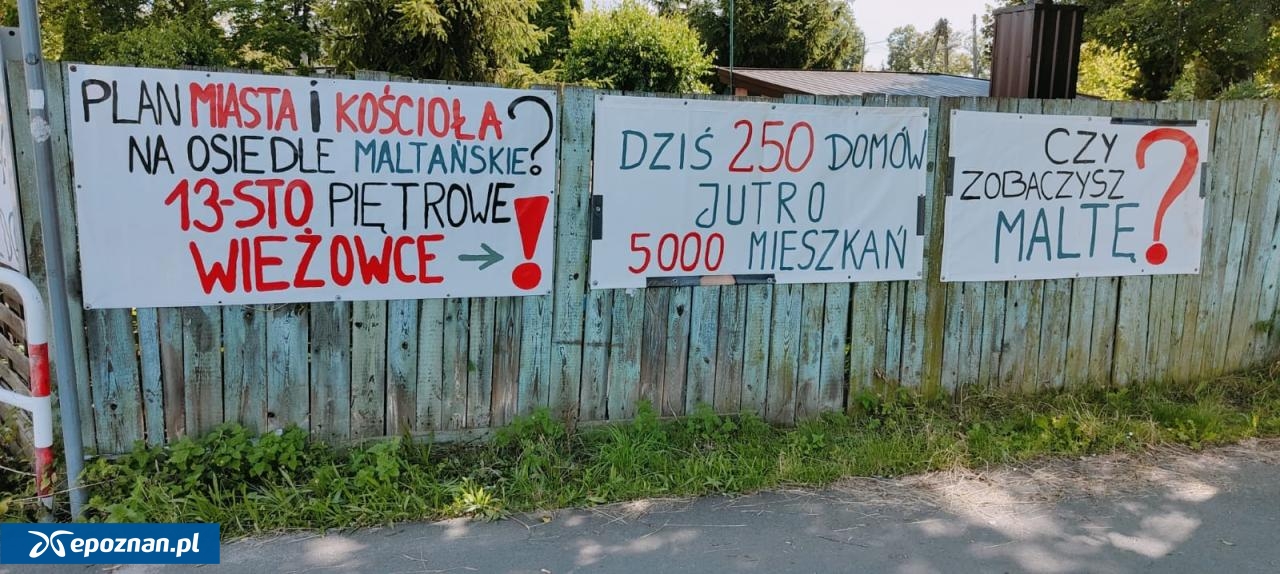 PLAN MIASTA i KOŚCIOŁA
NA OSIEDLE MALTAŃSKIE?
13-STO PIĘTROWE
WIEŻOWCE → !
DZIŚ 250 DOMÓW
JUTRO
5000 MIESZKAŃ
CZY
ZOBACZYSZ
MALTĘ ?
epoznan.pl